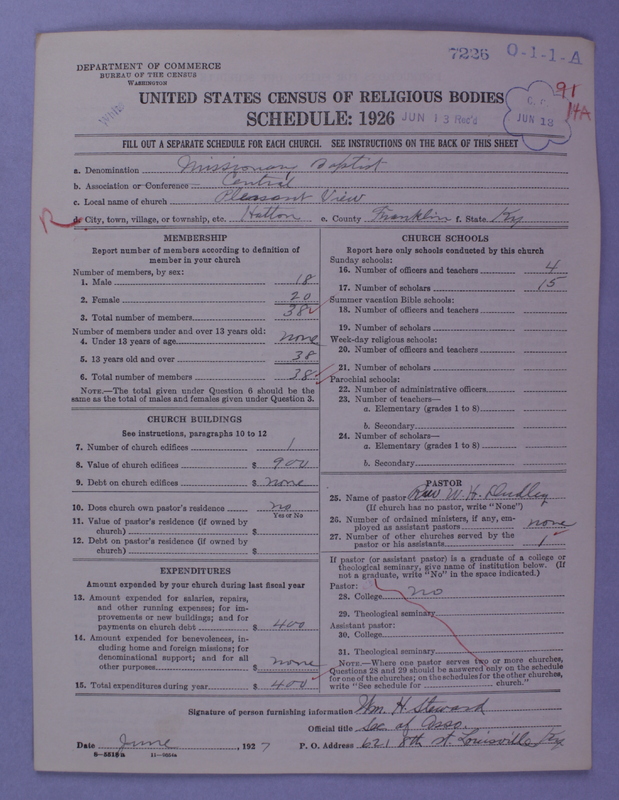 7226 0-1-1-A
DEPARTMENT OF COMMERCE
BUREAU OF THE CENSUS
WASHINGTON
91
11A
UNITED STATES CENSUS OF RELIGIOUS BODIES
SCHEDULE: 1926 JUN 13 Rec'd
JUN 13
FILL OUT A SEPARATE SCHEDULE FOR EACH CHURCH. SEE INSTRUCTIONS ON THE BACK OF THIS SHEET
a. Denomination Missionary Baptist
b. Association or Conference Central
c. Local name of church Pleasant View
R d. City, town, village, or township, etc. Hatton e. County Franklin f. State Ky
MEMBERSHIP
Report number of members according to definition of
member in your church
Number of members, by sex:
1. Male 18
2. Female 20
3. Total number of members 38
Number of members under and over 13 years old:
4. Under 13 years of age none
5. 13 years old and over 38
6. Total number of members 38
NOTE.—The total given under Question 6 should be the
same as the total of males and females given under Question 3.
CHURCH BUILDINGS
See instructions, paragraphs 10 to 12
7. Number of church edifices 1
8. Value of church edifices $ 900
9. Debt on church edifices $ none
10. Does church own pastor's residence no
Yes or No
11. Value of pastor's residence (if owned by
church) $
12. Debt on pastor's residence (if owned by
church) $
EXPENDITURES
Amount expended by your church during last fiscal year
13. Amount expended for salaries, repairs,
and other running expenses; for im-
provements or new buildings; and for
payments on church debt $ 400
14. Amount expended for benevolences, in-
cluding home and foreign missions; for
denominational support; and for all
other purposes $ none
15. Total expenditures during year $ 400
CHURCH SCHOOLS
Report here only schools conducted by this church
Sunday schools:
16. Number of officers and teachers 4
17. Number of scholars 15
Summer vacation Bible schools:
18. Number of officers and teachers
19. Number of scholars
Week-day religious schools:
20. Number of officers and teachers
21. Number of scholars
Parochial schools:
22. Number of administrative officers
23. Number of teachers—
a. Elementary (grades 1 to 8)
b. Secondary
24. Number of scholars—
a. Elementary (grades 1 to 8)
b. Secondary
PASTOR
25. Name of pastor Rev W. H. Dudley
(If church has no pastor, write "None")
26. Number of ordained ministers, if any, em-
ployed as assistant pastors none
27. Number of other churches served by the
pastor or his assistants 1
If pastor (or assistant pastor) is a graduate of a college or
theological seminary, give name of institution below. (If
not a graduate, write "No" in the space indicated.)
Pastor:
28. College no
29. Theological seminary
Assistant pastor:
30. College
31. Theological seminary
NOTE.—Where one pastor serves two or more churches,
Questions 28 and 29 should be answered only on the schedule
for one of the churches; on the schedules for the other churches,
write "See schedule for church."
Signature of person furnishing information Wm. H. Steward
Official title Sec. of Asso.
Date June, 1927 P. O. Address 621 8th St. Louisville Ky
8-5515a 11-9664a